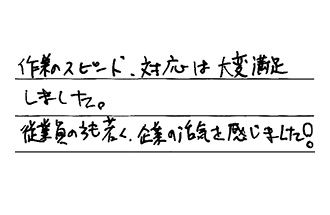 作業のスピード、対応は大変満足
しました。
従業員の方も若く、企業の活気を感じました!